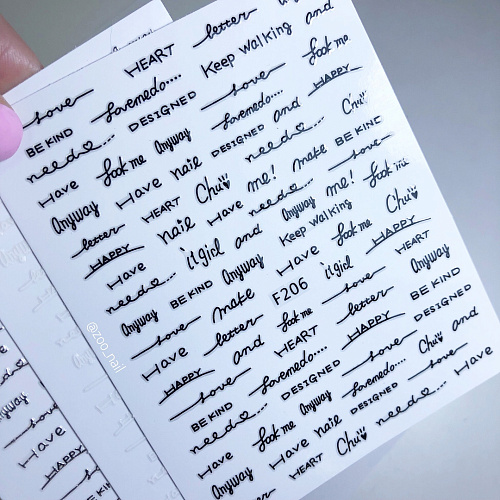 and
letter
HEART
Keep walking
love
look me
lovemedo....
love
HAPPY
BE KIND
DESIGNED
lovemedo...
and
Chu
need♡....
Anyway
DESIGNED
need♡...
BE KIND
Have
look me
nail
me!
make
love
Anyway
Have
Chu
need♡...
me!
look me
letter
HEART
Have
Anyway
Chu
HAPPY
nail
and
Keep walking
HAPPY
Have
it girl
Have
look me
HEART
need♡...
BE KIND
Anyway
it girl
Anyway
Anyway
make
F206
love
BE KIND
love
letter
look me
letter
DESIGNED
Have
and
HEART
HAPPY
Chu
and
HAPPY
lovemedo....
love
love
love
DESIGNED
lovemedo....
Have
BE KIND
Anyway
DESIGNED
need♡...
look me
nail
need♡...
Have
Have
Chu
Anyway
HEART
letter
@zoo_nail